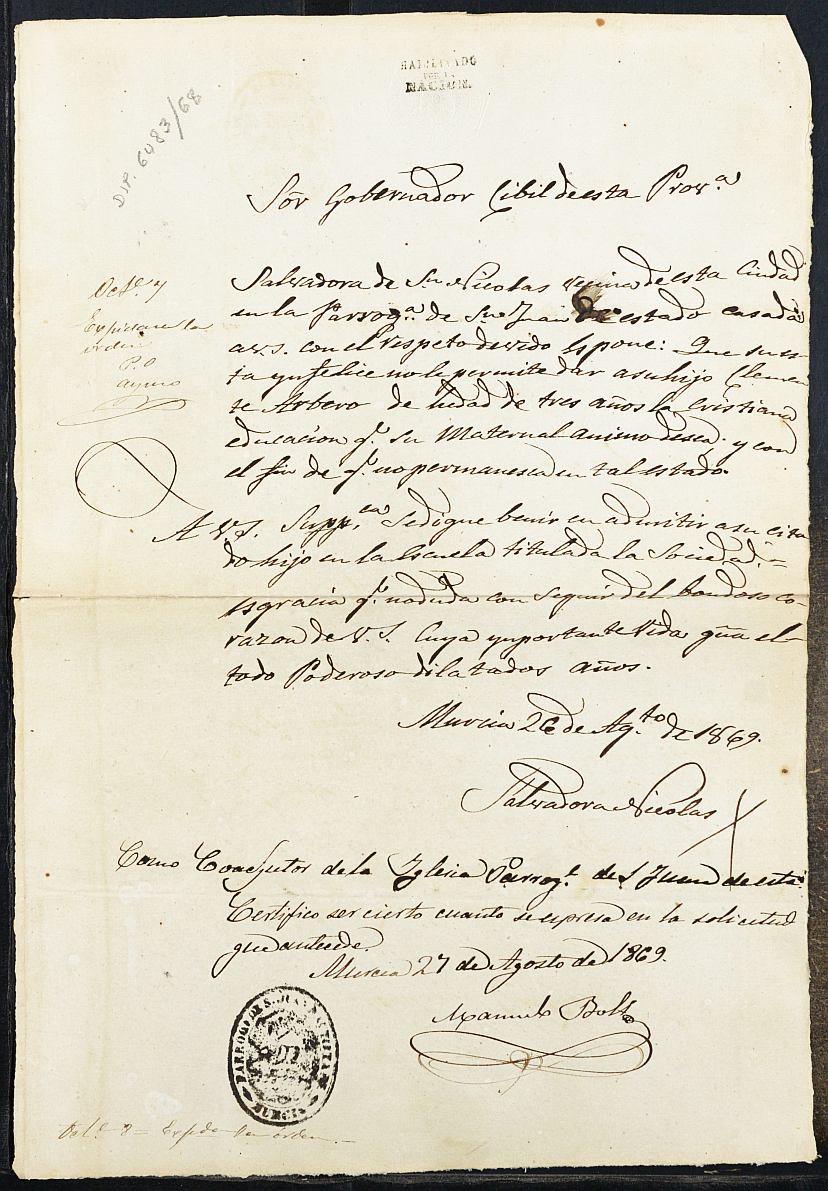 HABILITADO
POR LA
NACION.
DIP. 6483/68
Sōr Gobernador Cibil de esta Prov.ª
Oct.e 7
Espidase la
orden
P.O
Salvadora de Sn Nicolas vecina de esta Ciudad
en la Parroq.a de Sn Juan de estado casada
a V.S. con el respeto devido Espone: Que su
ta ynfelice no le permite dar a su hijo Clemen
te Arbero de hedad de tres años la Cristiana
educacion q.e su Maternal animo desea. y con
el fin de q.e no permanesca en tal estado.
A V.S. Supp.ca se digne benir en admitir a su cita
do hijo en la Escuela titulada la Sociedad.=
es gracia q.e no duda con seguir del bondoso co-
razon de V.S. Cuya ymportante Vida gūa el
todo Poderoso dilatados años.
Murcia 26 de Ag.to de 1869.
Salvadora Nicolas
Como Coadjutor de la Yglesia Parroq.l de S Juan de esta
Certifico ser cierto cuanto se espresa en la solicitud
que antecede.
Murcia 27 de Agosto de 1869.
Manuel
PARROQ.A DE S. JUAN BAUTISTA
MURCIA
Oct.e 8 = Espida la orden